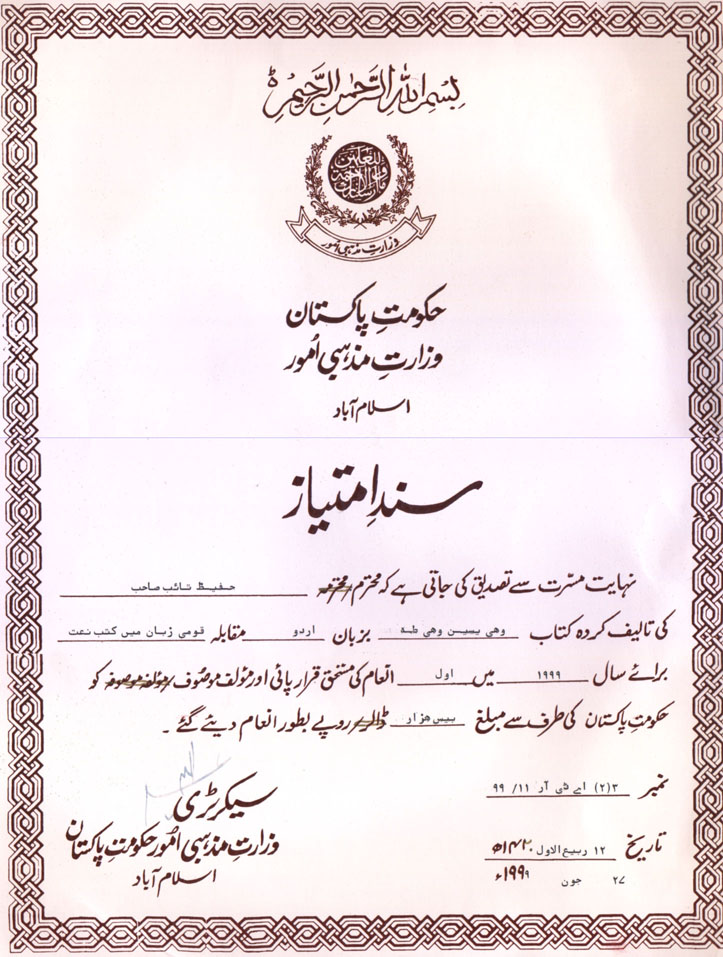 بِسْمِ اللہِ الرَّحْمٰنِ الرَّحِیْمِ
وزارتِ مذہبی امُور
حکومتِ پاکستان
وزارتِ مذہبی اُمور
اسلام آباد
سندِ امتیاز
نہایت مسّرت سے تصدیق کی جاتی ہے کہ محترم/محترمہ حفیظ تائب صاحب
کی تالیف کردہ کتاب وھی یسین وھی طہ بزبان اردو مقابلہ قومی زبان میں کتب نعت
برائے سال ۱۹۹۹ میں اول انعام کی مستحق قرار پائی اور مؤلف موصُوف/مؤلفہ موصوفہ کو
حکومتِ پاکستان کی طرف سے مبلغ بیس ھزار ڈالر/روپے بطور انعام دیئے گئے ۔
نمبر ۳(۲) اے ڈی آر ۱۱/ ۹۹
سیکرٹری
وزارتِ مذہبی امُور حکومتِ پاکستان
اسلام آباد
تاریخ ۱۲ ربیع الاول ۱۴۲۰ھ
۲۷ جون ۱۹۹۹ء